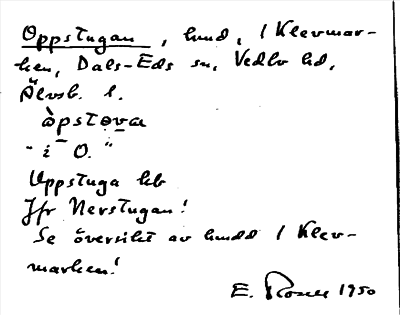 Oppstugan, hmd, / Klevmar-
ken, Dals-Eds sn, Vedbo hd,
Älvsb. l.
òpstøva
"i O."
Uppstuga kb
Jfr Nerstugan!
Se översikt av hmdd / Klev-
marken!
E. 1950